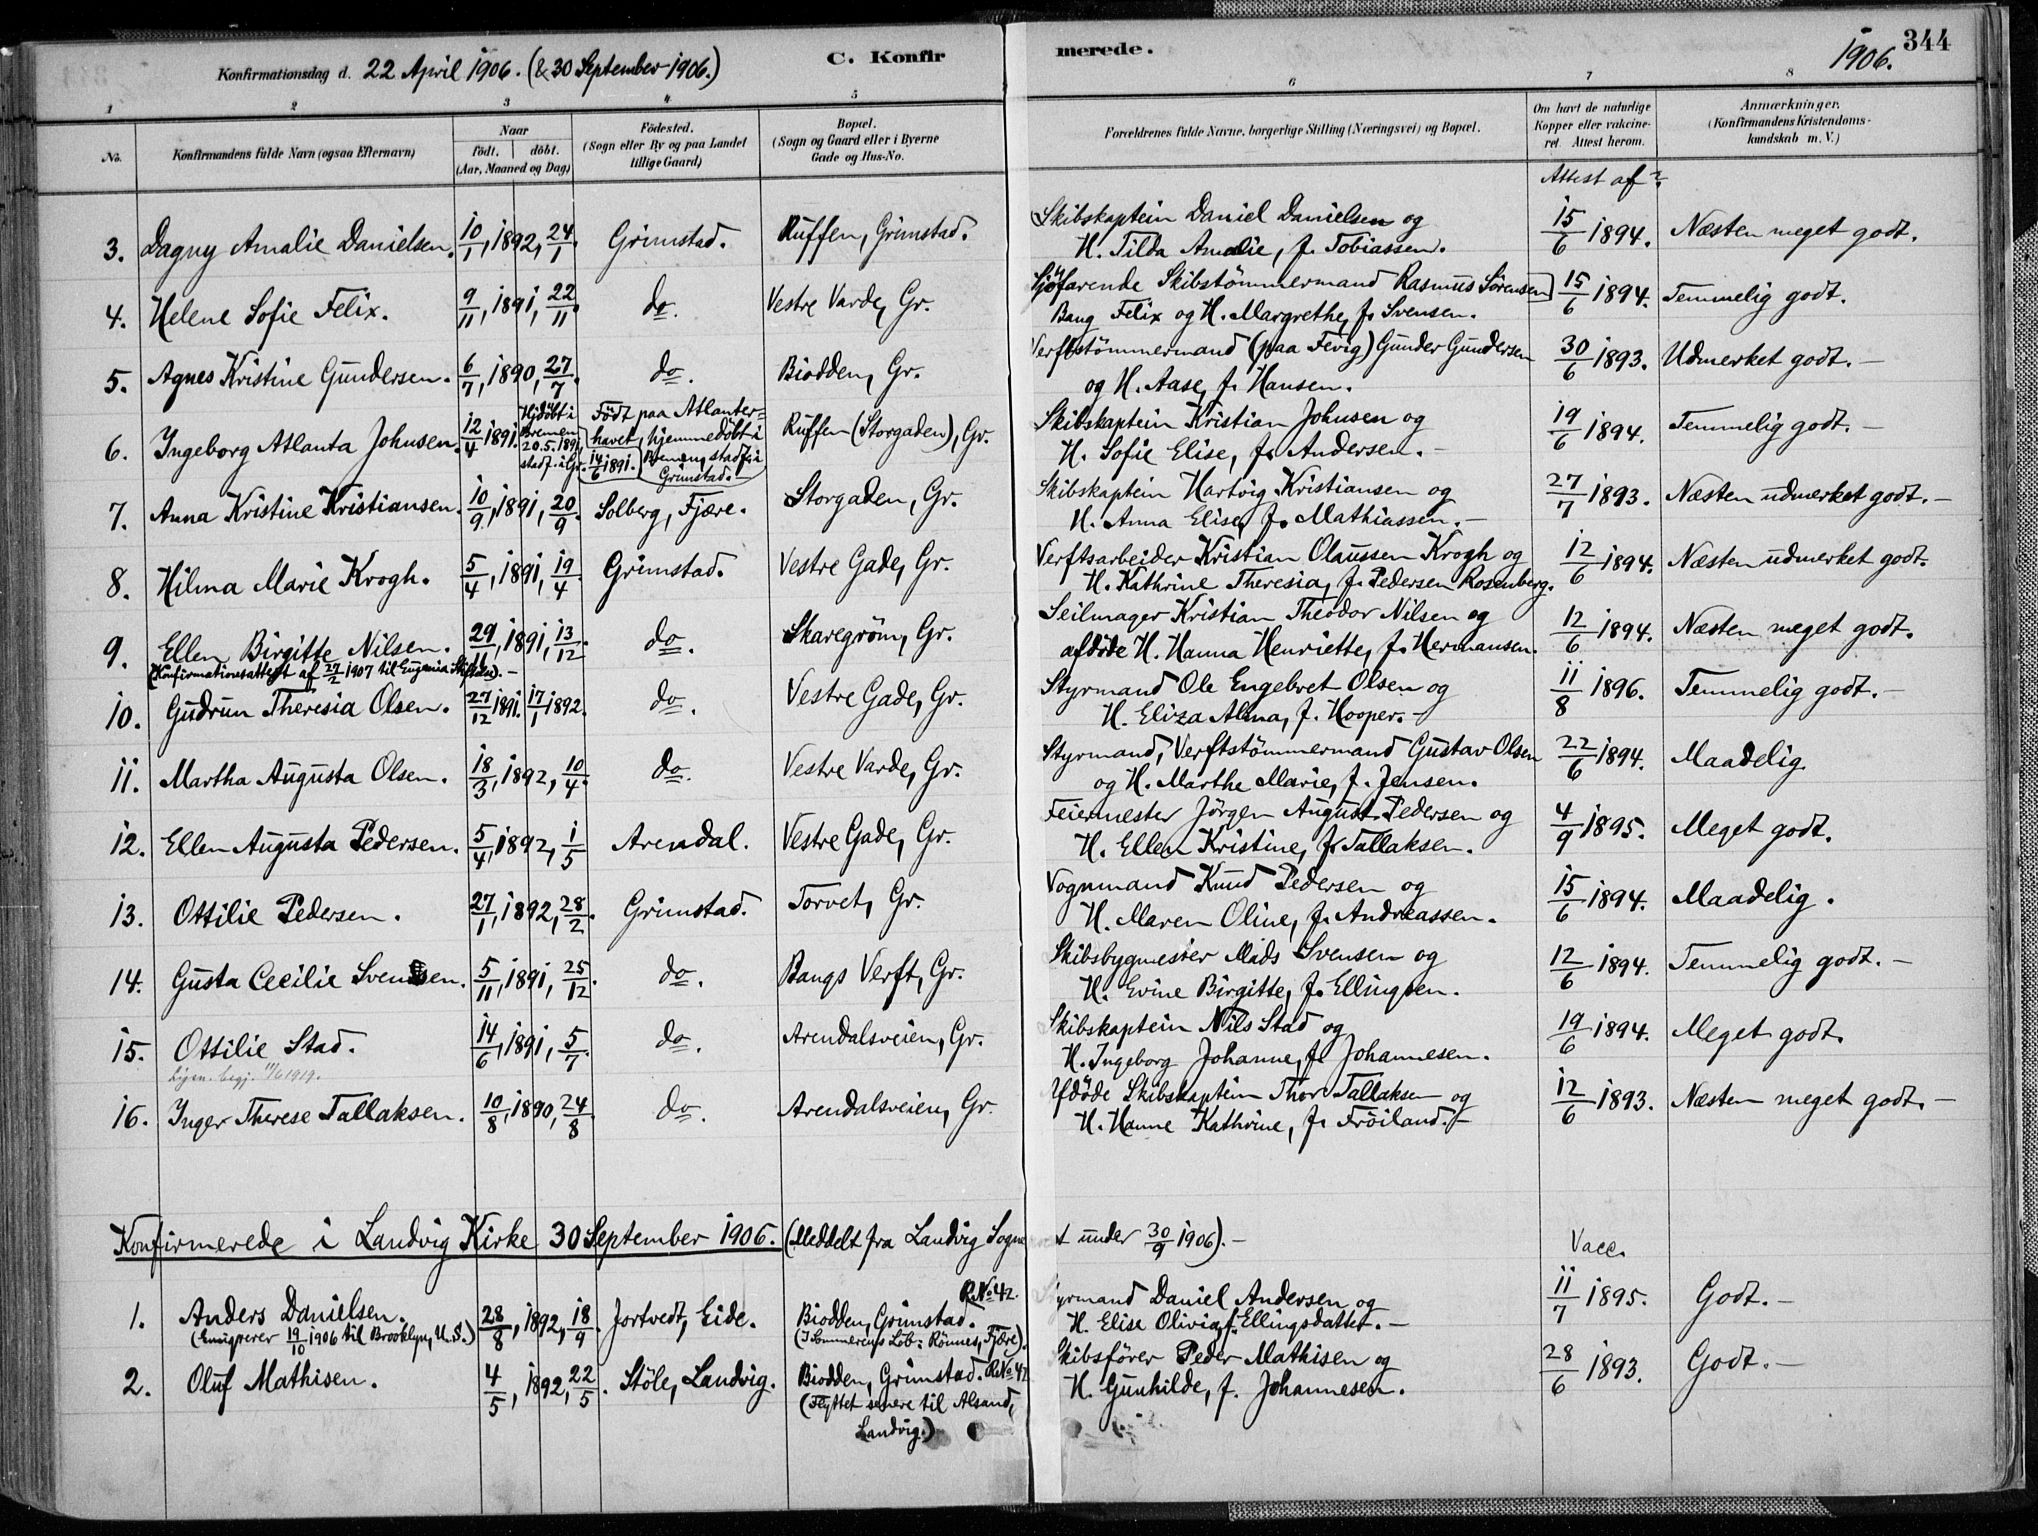 344
1906.
Konfirmationsdag d. 22 April 1906. (& 30 September 1906.)
C. Konfirmerede.
1 2 3 4 5 6 7 8
No.
Konfirmandens fulde Navn (ogsaa Efternavn)
Naar
født. døbt.
(Aar, Maaned og Dag)
Fødested.
(Sogn eller By og paa Landet
tillige Gaard)
Bopæl.
(Sogn og Gaard eller i Byerne
Gade og Hus-No.
Forældrenes fulde Navne, borgerlige Stilling (Næringsvei) og Bopæl.
Om havt de naturlige
Kopper eller vakcine-
ret. Attest herom.
Anmærkninger.
(Konfirmandens Kristendoms-
kundskab m. V.)
Attest af?
3. Dagny Amalie Danielsen. 10/1, 1892, 24/1. Grimstad. Ruffen, Grimstad. Skibskaptein Daniel Danielsen og 15/6 1894. Næsten meget godt.
H. Tilda Amalie, f. Tobiassen.
4. Helene Sofie Felix. 9/11, 1891, 22/11. do. Vestre Varde, Gr. Sjöfarende Skibstömmermand Rasmus Sörensen 15/6 1894. Temmelig godt.
Bang Felix og H. Margrethe, f. Svensen.
5. Agnes Kristine Gundersen. 6/7, 1890, 27/7. do. Biodden, Gr. Verftstömmermand (paa Fevig) Gunder Gundersen 30/6 1893. Udmerket godt.-
og H. Aase, f. Hansen.
6. Ingeborg Atlanta Johnsen. 12/4 1891. Hjdöbt i Bremen 20.5.1891, stadf. i Gr. 14/6 1891. Födt paa Atlanter=
havet, hjemmedöbt i
Bremen, stadf. i
Grimstad.
Ruffen (Storgaden), Gr. Skibskaptein Kristian Johnsen og 19/6 1894. Temmelig godt.-
H. Sofie Elise, f. Andersen.-
7. Anna Kristine Kristiansen. 10/9, 1891, 20/9. Solberg, Fjære. Storgaden, Gr. Skibskaptein Hartvig Kristiansen og 27/7 1893. Næsten udmerket godt.-
H. Anna Elise, f. Mathiassen.-
8. Hilma Marie Krogh. 5/4, 1891, 19/4. Grimstad. Vestre Gade, Gr. Verftsarbeider Kristian Olaussen Krogh og 12/6 1894. Næsten udmerket godt.
H. Kathrine Theresia, f. Pedersen Rosenberg.
9. Ellen Birgitte Nilsen. 29/11, 1891, 13/12. do. Skaregröm, Gr. Seilmager Kristian Theodor Nilsen og 12/6 1894. Næsten meget godt.
(Konfirmationsattest af 27/2 1907 til Eugenia Stiftelse).- afdöde H. Hanna Henriette, f. Hermansen.
10. Gudrun Theresia Olsen. 27/12 1891. 17/1 1892. do. Vestre Gade, Gr. Styrmand Ole Engebret Olsen og 11/8 1896. Temmelig godt.-
H. Eliza Alma, f. Hooper.-
11. Martha Augusta Olsen. 18/3, 1892, 10/4. do. Vestre Varde, Gr. Styrmand, Verftstömmermand Gustav Olsen 22/6 1894. Maadelig
og H. Marthe Marie, f. Jensen.
12. Ellen Augusta Pedersen. 5/4, 1892, 1/5 Arendal. Vestre Gade, Gr. Feiermester Jörgen August Pedersen og 4/9 1895. Meget godt.
H. Ellen Kristine, f. Tallaksen.
13. Ottilie Pedersen. 27/1, 1892, 28/2. Grimstad. Torvet, Gr. Vognmand Knud Pedersen og 15/6 1894. Maadelig.
H. Maren Oline, f. Andreassen.
14. Gusta Cecilie Svendsen. 5/11, 1891, 25/12 do. Bangs Verft, Gr. Skibsbygmester Mads Svensen og 12/6 1894. Temmelig godt.-
H. Evine Birgitte, f. Ellingsen.
15. Ottilie Stad. 14/6, 1891, 5/7. do. Arendalsveien, Gr. Skibskaptein Nils Stad og 19/6 1894. Meget godt.
begj. 11/6 1919. H. Ingeborg Johanne, f. Johannesen.
16. Inger Therese Tallaksen. 10/8, 1890, 24/8. do. Arendalsveien, Gr. Afdöde Skibskaptein Thor Tallaksen og 12/6 1893. Næsten meget godt.-
H. Hanne Kathrine, f. Fröiland.-
Konfirmerede i Landvig Kirke 30 September 1906. (Meddelt fra Landvig Sogne t under 30/9 1906).-
Vacc.
1. Anders Danielsen. 28/8, 1892, 18/9. Jortvedt, Eide. Biodden, Grimstad. R.No 42. Styrmand Daniel Andersen og 11/7 1895. Godt.-
(Emigrerer 19/10 1906 til Brooklyn, U.S.) (I Sommerens Löb: Rönnes, Fjære). H. Elise Olivia, f. Ellingsdatter.-
2. Oluf Mathisen. 4/5, 1892, 22/5. Stöle, Landvig. Biodden, Grimstad. R.No 42 Skibsförer Peder Mathisen og 28/6 1893. Godt.-
(Flyttet senere til Alsand, H. Gunhilde, f. Johannesen.
Landvig.)